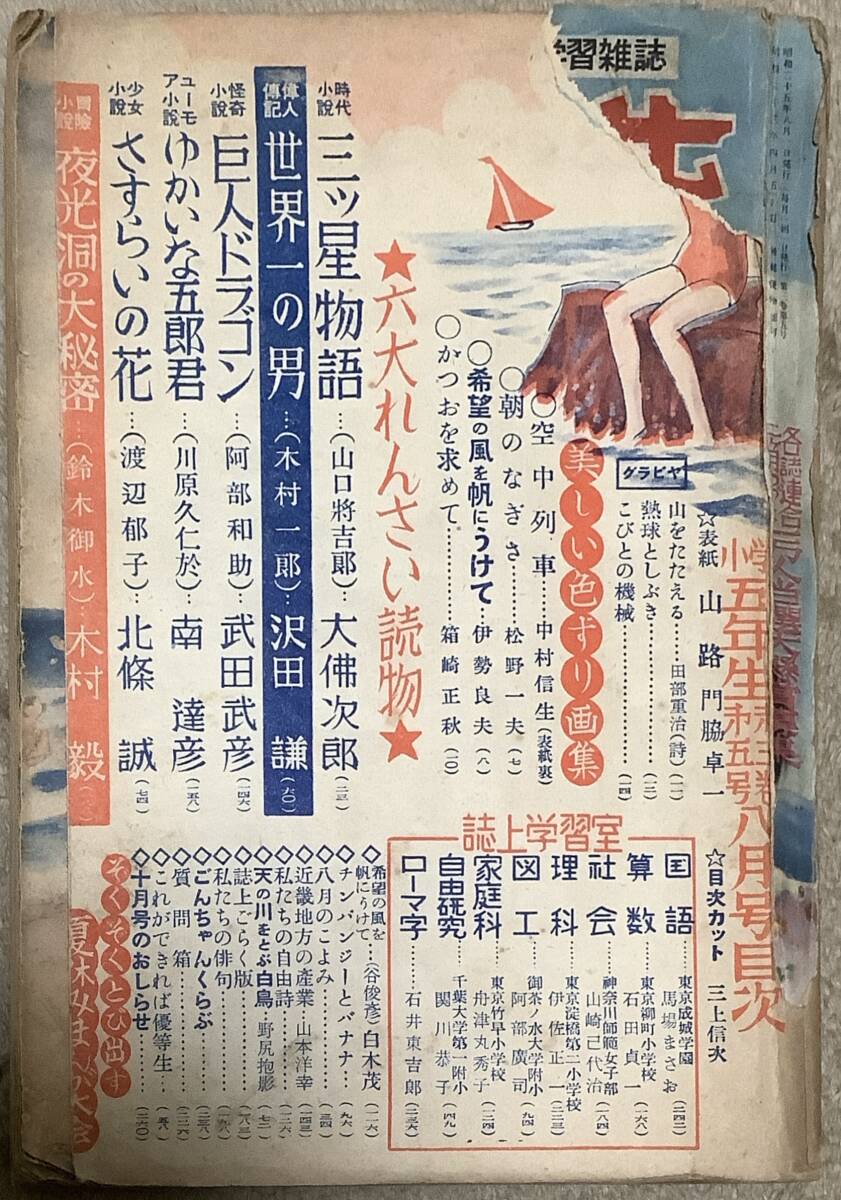 学習雑誌
昭和二十五年八月
小学五年生 第三巻 第五号 八月号目次
☆表紙 山路 門脇卓一
☆目次カット 三上信次
グラビヤ
山をたたえる……田部重治(詩)(一一)
熱球としぶき……(一二)
こびとの機械……(一四)
美しい色ずり画集
○空中列車……中村信生(表紙裏)
○朝のなぎさ……松野一夫(七)
○希望の風を帆にうけて…伊勢良夫(八)
○かつおを求めて……箱崎正秋(一〇)
★六大れんさい読物★
時代小説 三ツ星物語…(山口將吉郎)大佛次郎(二三)
偉人傳記 世界一の男…(木村一郎)…沢田謙(六〇)
怪奇小説 巨人ドラゴン…(阿部和助)…武田武彦(一四六)
ユーモア小説 ゆかいな五郎君…(川原久仁於)…南達彦(一五八)
少女小説 さすらいの花…(渡辺郁子)…北條誠(七四)
冒險小説 夜光洞の大秘密…(鈴木御水)…木村毅
誌上学習室
国語…東京成城学園 馬場まさお(二四二)
算数…東京柳町小学校 石田貞一(一六六)
社会…神奈川師範女子部 山崎己代治(一八四)
理科…東京淀橋第二小学校 伊佐正一(二二三)
図工…御茶ノ水大学附小 阿部廣司(九四)
家庭科 東京竹早小学校 舟津丸秀子(一二四)
自由研究 千葉大学第一附小 関川恭子(四九)
ローマ字……石井東吉郎(二三六)
◇希望の風を帆にうけて…(谷俊彦)白木茂(一一六)
◇チンパンジーとバナナ……(九六)
◇八月のこよみ……(三四)
◇近畿地方の産業 山本洋幸(一四三)
◇私たちの自由詩……(一二六)
◇天の川をとぶ白鳥 野尻抱影(七二)
◇誌上ごらく版……(八三)
◇私たちの俳句……(一九八)
◇ごんちゃんくらぶ……(二三八)
◇質問箱……(二二六)
◇これができれば優等生…(五八)
◇十月号のおしらせ……(二六〇)
ぞくぞくとび出す
夏休みまんが大会